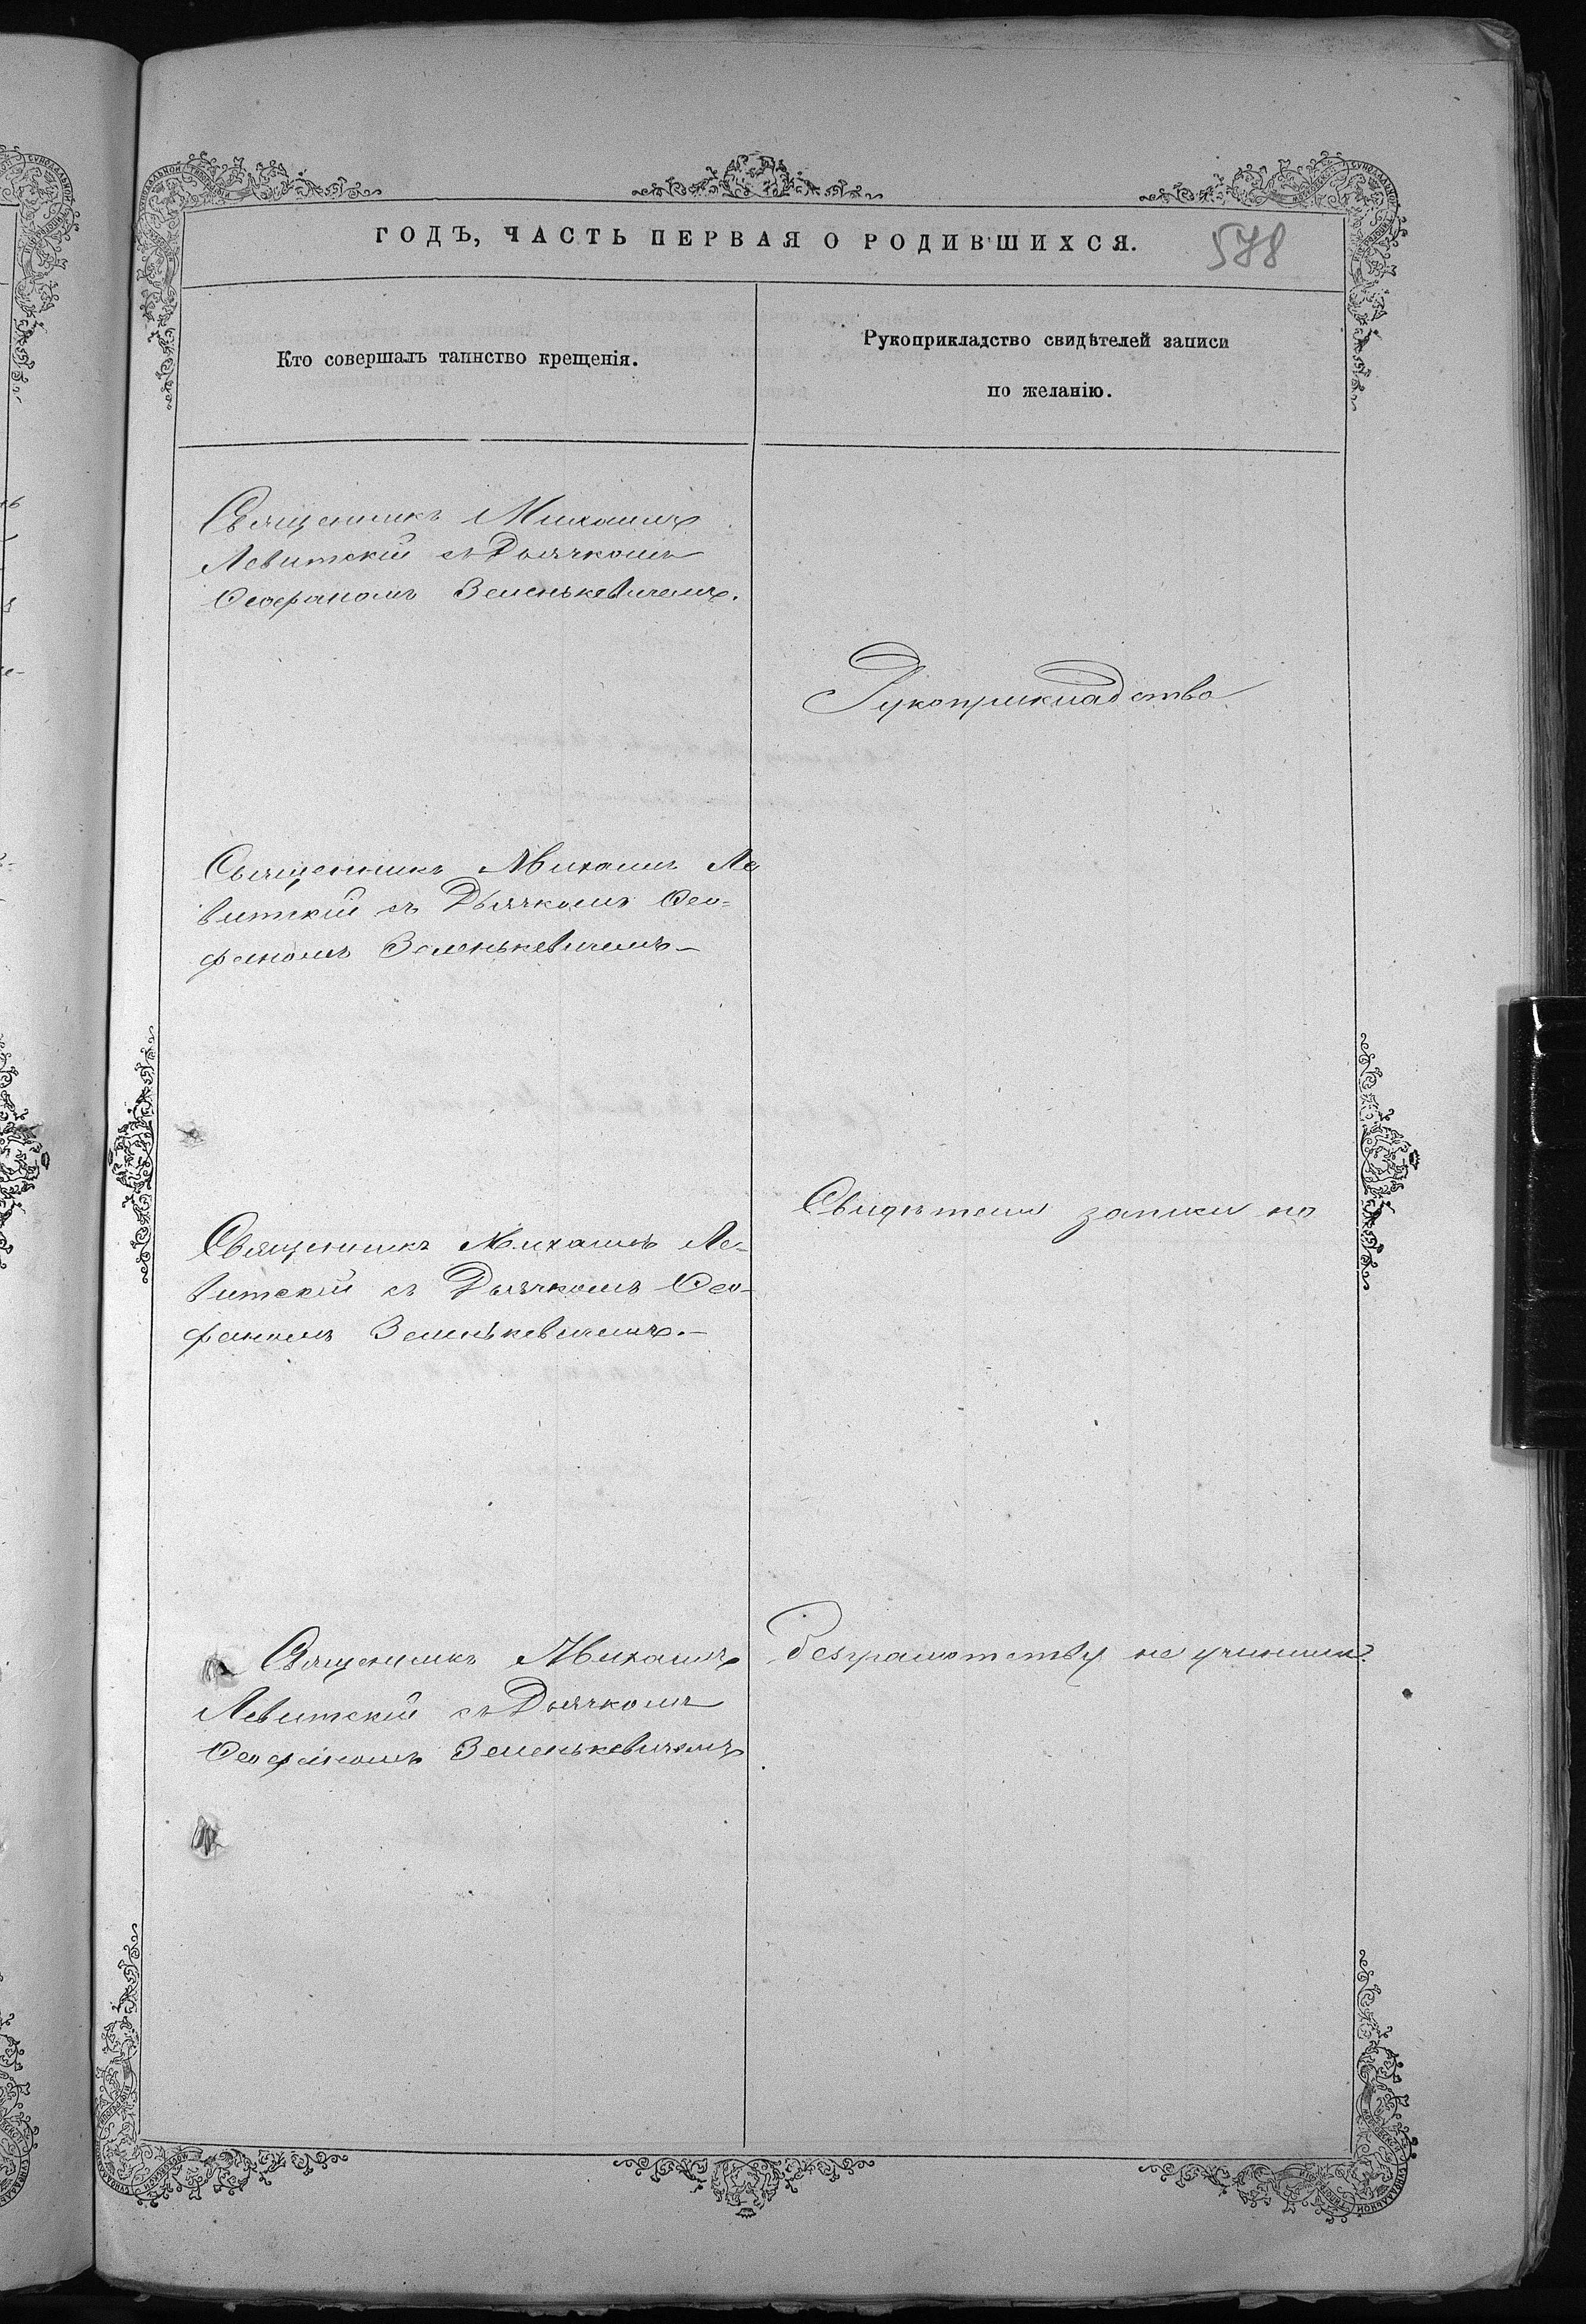 ГОДЪ, ЧАСТЬ ПЕРВАЯ О РОДИВШИХСЯ.
578
Кто совершалъ таинство крещенія.
Рукоприкладство свидѣтелей записи
по желанію.
Священникъ Михаилъ
Левитскій съ Дьячкомъ
Ѳеофаномъ Зеленькевичемъ.
Рукоприкладство
Священникъ Михаилъ Ле
витскій съ Дьячкомъ Ѳео=
фаномъ Зеленькевичемъ—
Свидѣтели записи по
Священникъ Михаилъ Ле-
витскій съ Дьячкомъ Ѳео-
фаномъ Зеленькевичемъ.—
Священникъ Михаилъ
Левитскій съ Дьячкомъ
Ѳеофаномъ Зеленькевичемъ
безграмотству не учинили.